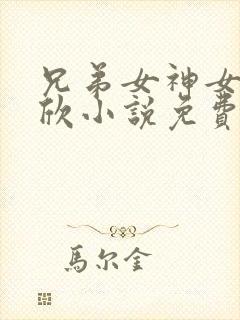 兄弟女神女
欣小說免費
馬尔金